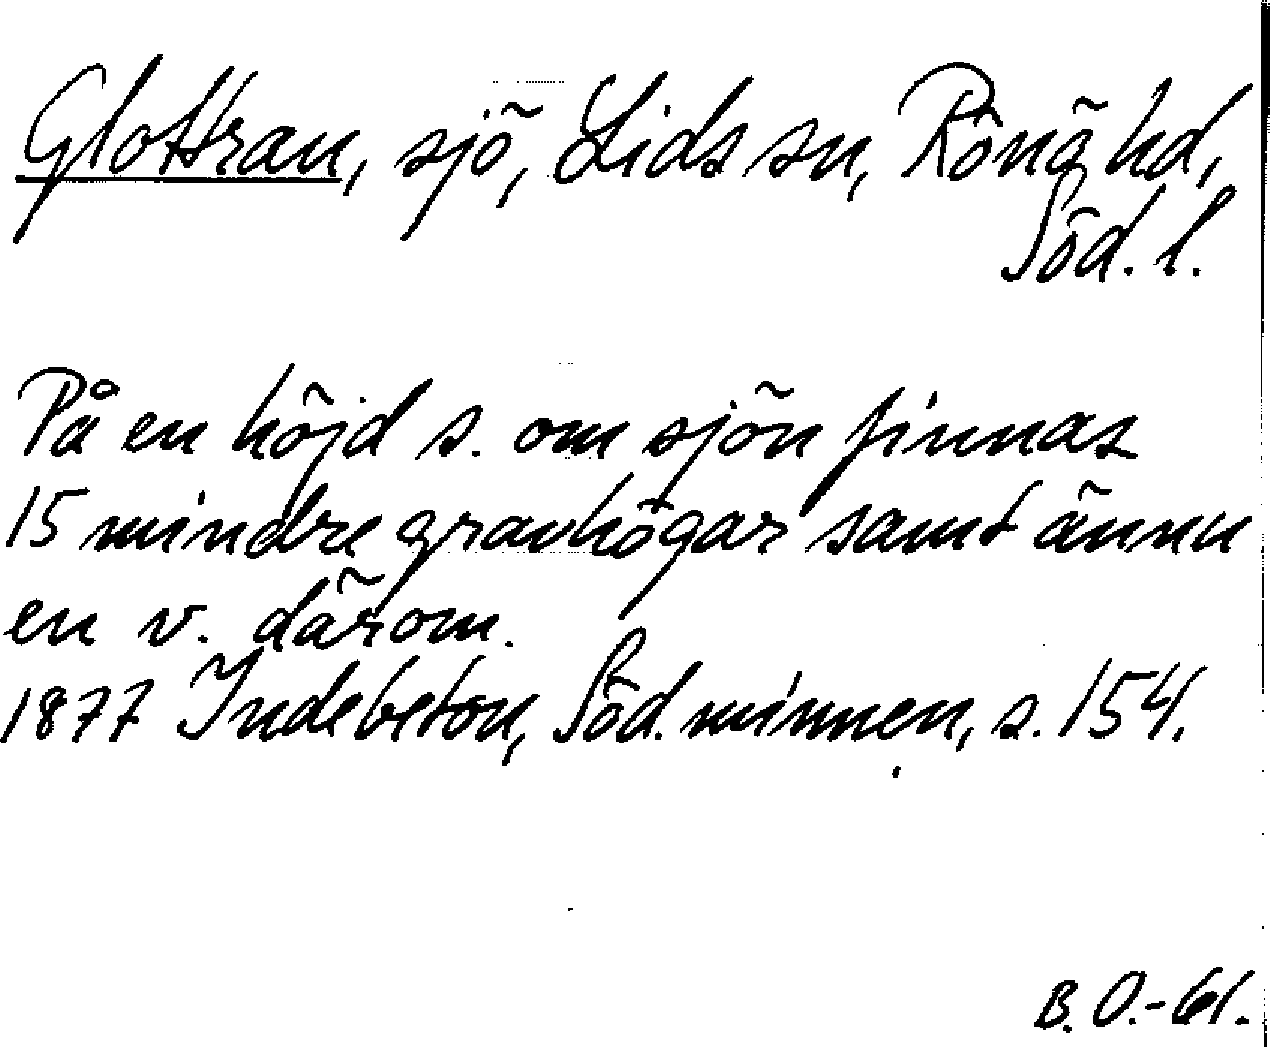 Glottran, sjö, Lids sn, Rönö hd,
Söd. l.
På en höjd s. om sjön finnas
15 mindre gravhögar samt ännu
en v. därom.
1877 Indebetou, Söd. minnen, s. 154.
B. O.-61.